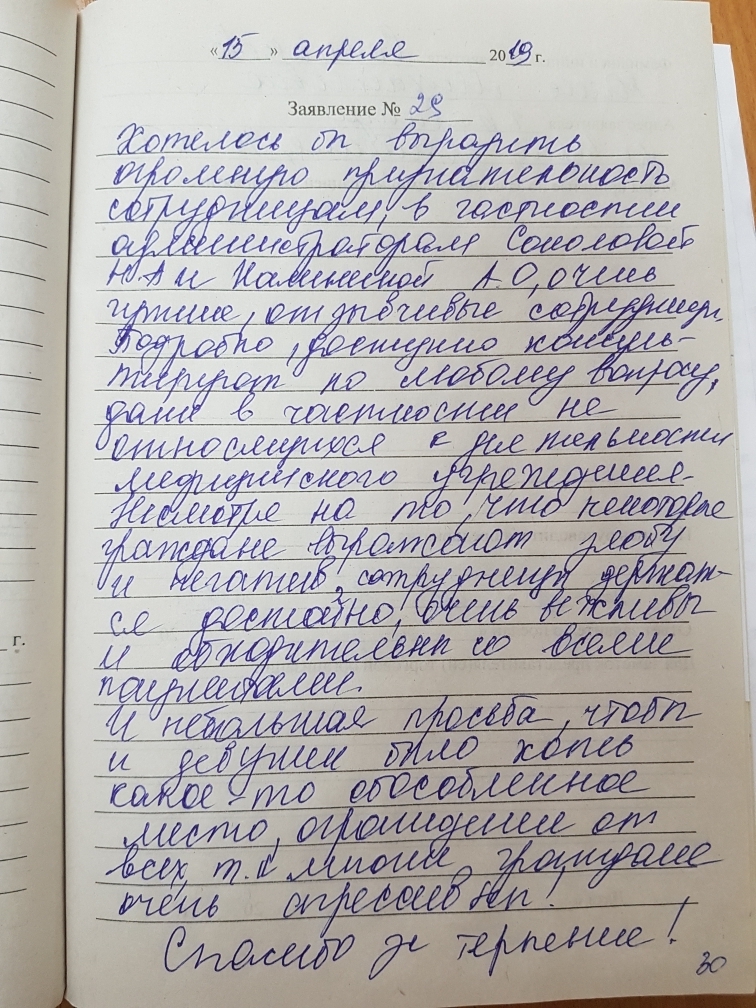 «15» апреля 2019 г.
Заявление № 29
Хотелось бы выразить
огромную признательность
сотрудницам, в частности
администраторам Соколовой
Н.А и Калининой А.О, очень
чуткие, отзывчивые сотрудницы.
Подробно, доступно консуль-
тируют по любому вопросу,
даже в частности не
относящихся к деятельности
медицинского учреждения.
Несмотря на то, что некоторые
граждане выражают злобу
и негатив, сотрудницы держат-
ся достойно, очень вежливы
и обходительны со всеми
пациентами.
И небольшая просьба, чтобы
и девушек было хоть
какое-то обособленное
место, ограждение от
всех, т.к многие граждане
очень агрессивны!
Спасибо за терпение!
30
г.